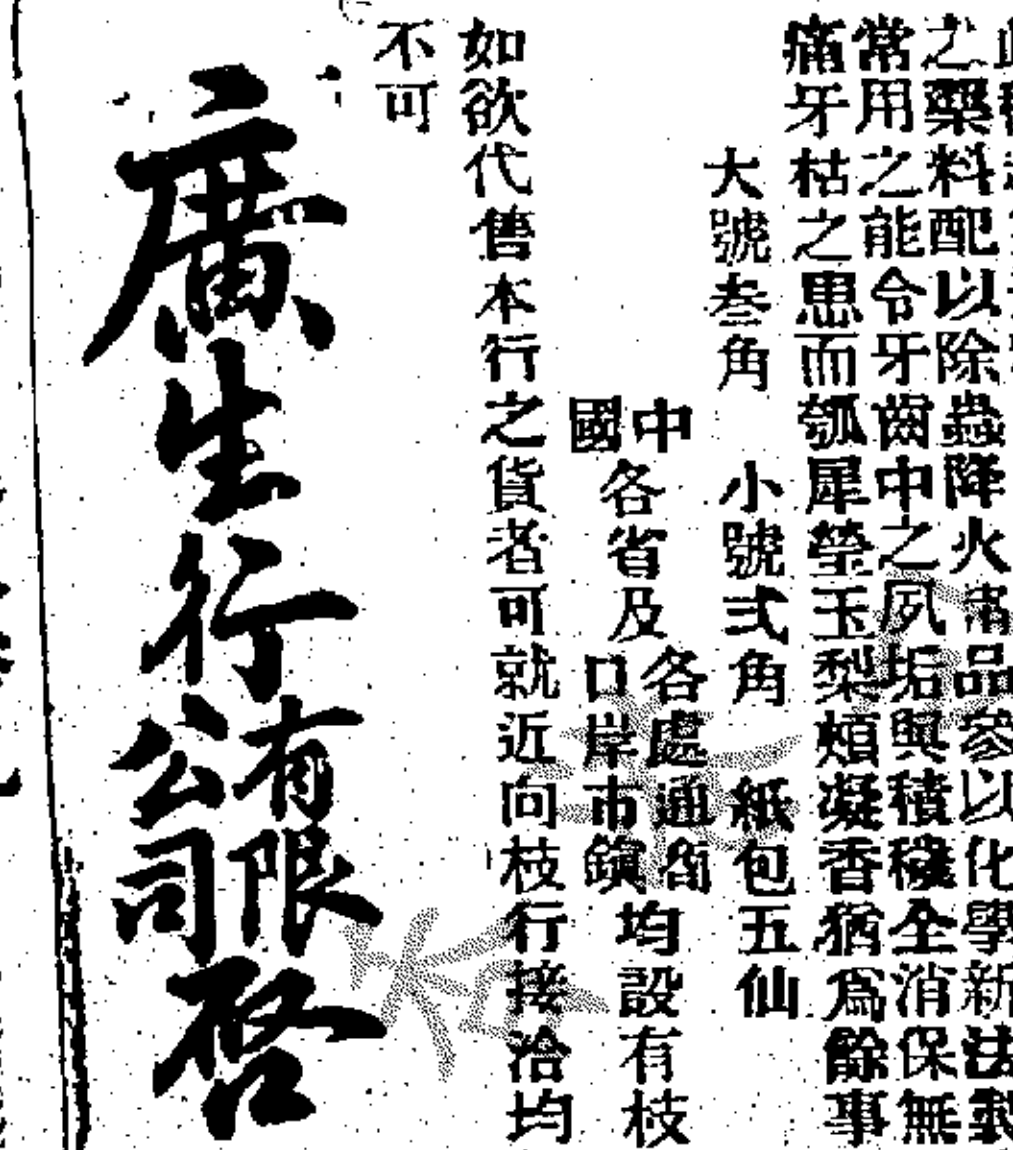 之藥料配以除蟲降火淸品參以化學新法製
常用之能令牙齒中之夙垢與積穢全消保無
痛牙枯之患而瓠犀瑩玉梨頰凝香猶爲餘事
大號叁角 小號弍角 紙包五仙
中國各省及各處通商口岸市鎭均設有枝
如欲代售本行之貨者可就近向枝行接洽均
不可
廣生行有限公司啓